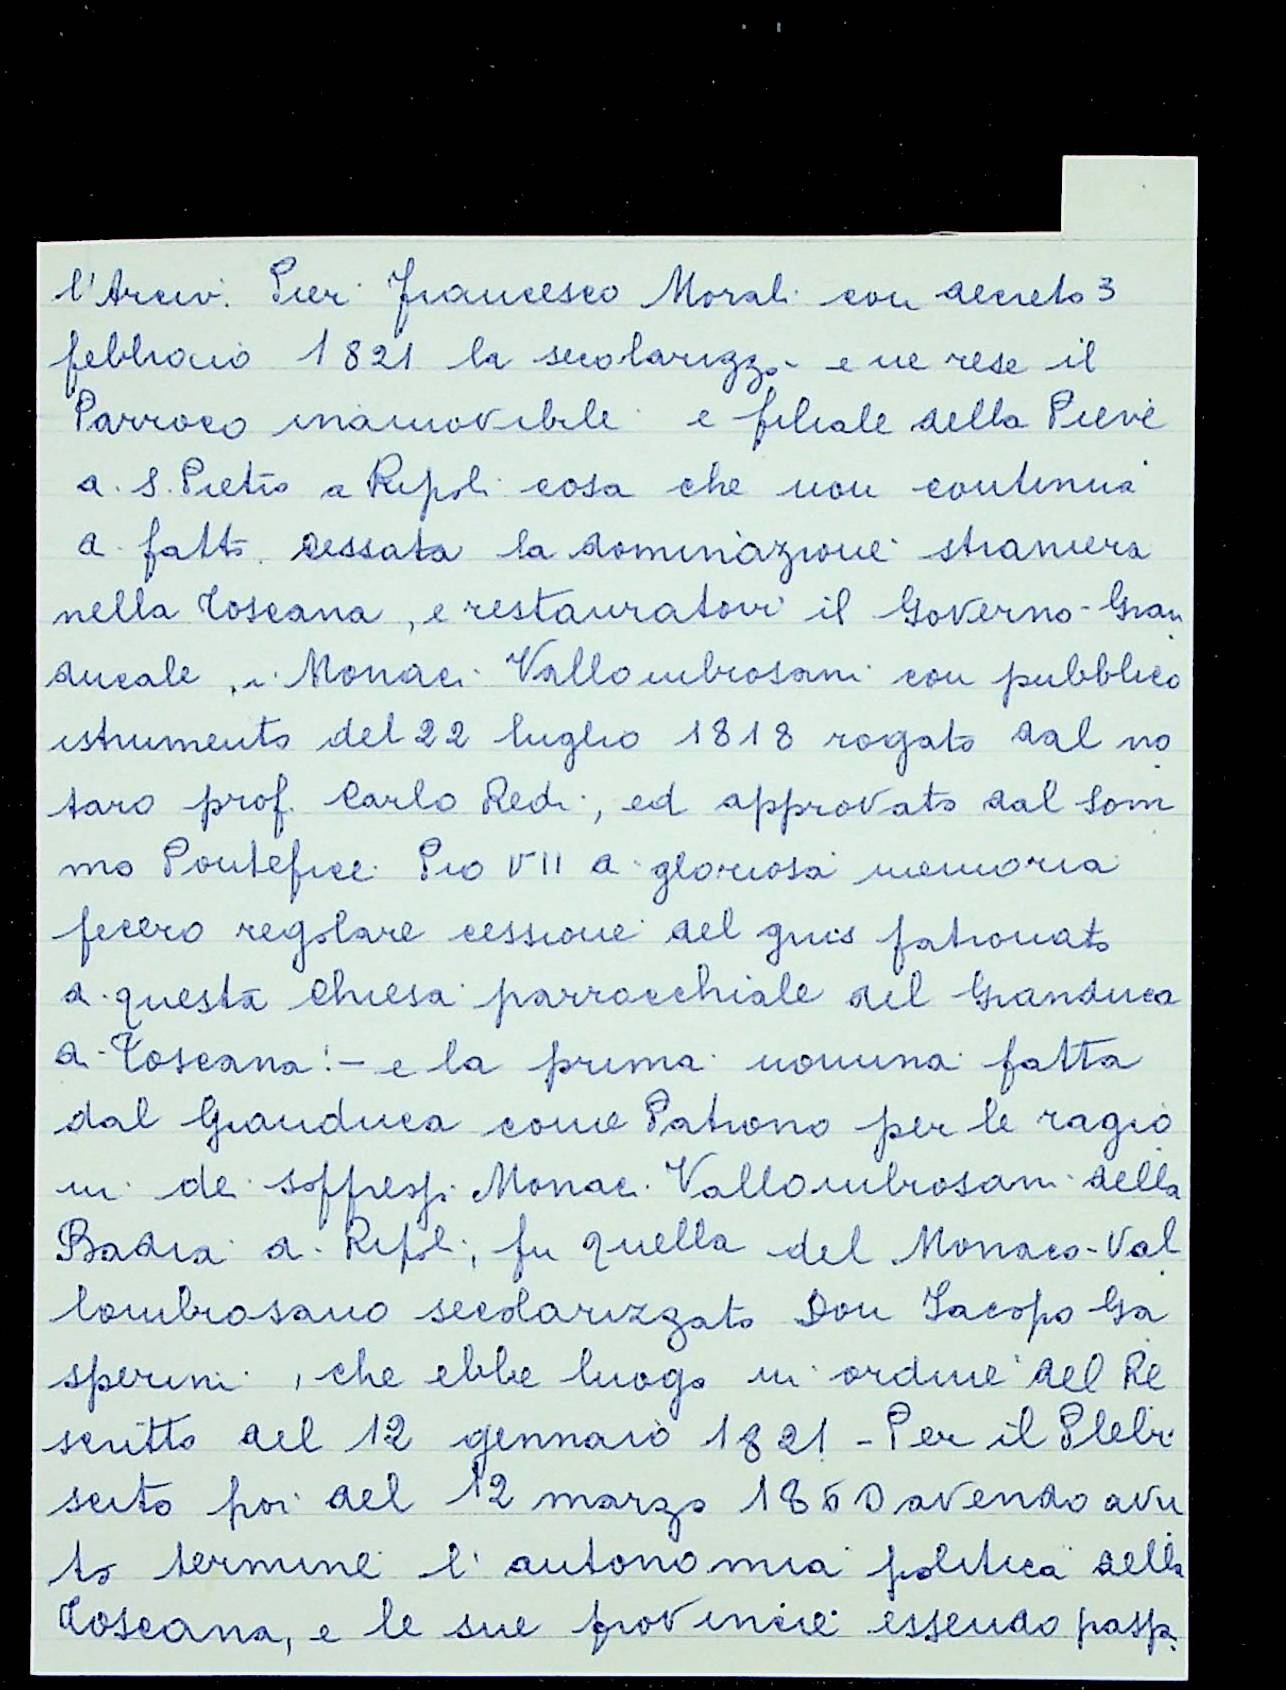 l'Arciv. Pier Francesco Morali con decreto 3
febbraio 1821 la secolarizzò e ne rese il
Parroco inamovibile e filiale della Pieve
di S. Pietro a Ripoli cosa che non continuà
di fatto. Cessata la dominazione straniera
nella Toscana, e restauratovi il Governo-Gran
ducale, i Monaci Vallombrosani con pubblico
istrumento del 22 luglio 1818 rogato dal no
taro prof. Carlo Redi, ed approvato dal Som
mo Pontefice Pio VII di gloriosa memoria
fecero regolare cessione del gius patronato
di questa Chiesa parrocchiale del Granduca
di Toscana: - e la prima nomina fatta
dal Granduca come Patrono per le ragio
ni dei soppressi Monaci Vallombrosani della
Badia di Ripoli, fu quella del Monaco-Val
lombrosano secolarizzato Don Iacopo Ga
sperini, che ebbe luogo in ordine del Re
scritto del 12 gennaio 1821 - Per il Plebi
scito poi del 12 marzo 1860 avendo avu
to termine l'autonomia politica della
Toscana, e le sue provincie essendo passa